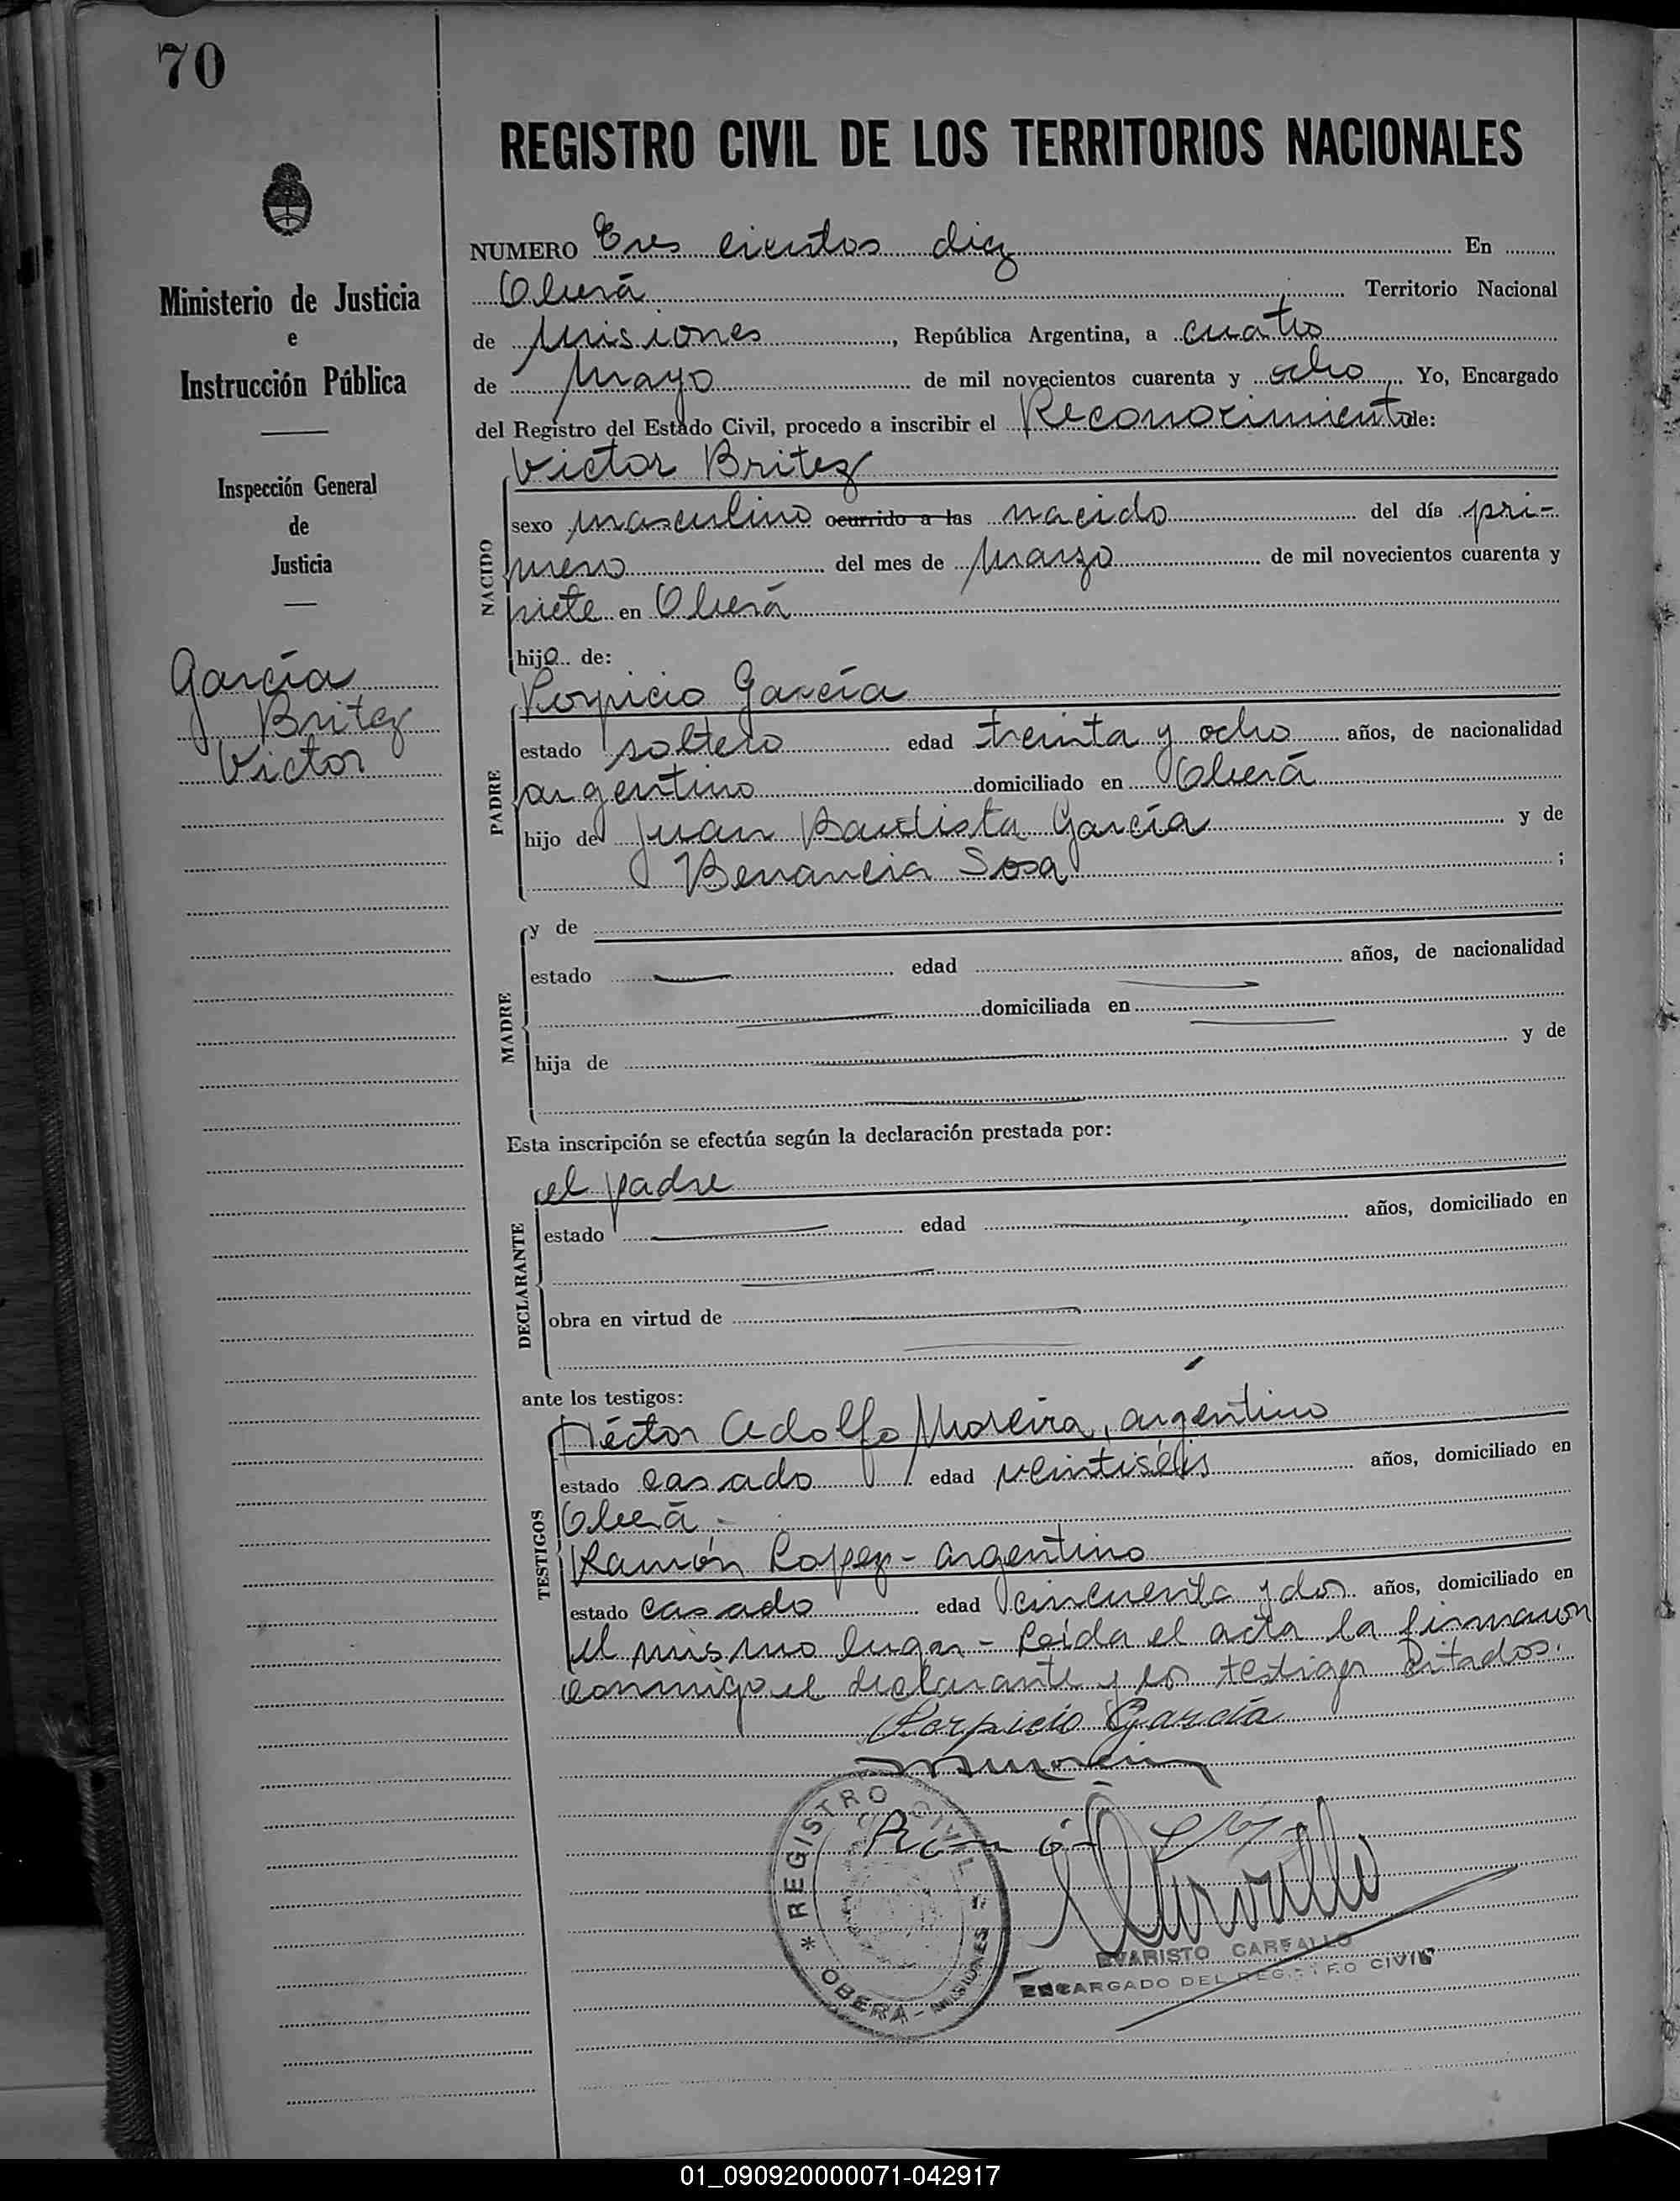 70
REGISTRO CIVIL DE LOS TERRITORIOS NACIONALES
Ministerio de Justicia
e
Instrucción Pública
Inspección General
de
Justicia
García
Britez
Victor
NUMERO Tres cientos diez En
Oberá Territorio Nacional
de Misiones, República Argentina, a cuatro
de Mayo de mil novecientos cuarenta y ocho, Yo, Encargado
del Registro del Estado Civil, procedo a inscribir el Reconocimiento de:
Victor Britez
NACIDO
sexo masculino ocurrido a las nacido del día pri-
mero del mes de Marzo de mil novecientos cuarenta y
siete en Oberá
hijo de:
PADRE
Porpicio García
estado soltero edad treinta y ocho años, de nacionalidad
argentino domiciliado en Oberá
hijo de Juan Bautista García y de
Benancia Sosa;
MADRE
y de
estado edad años, de nacionalidad
domiciliada en
hija de y de
Esta inscripción se efectúa según la declaración prestada por:
DECLARANTE
el padre
estado edad años, domiciliado en
obra en virtud de
ante los testigos:
TESTIGOS
Héctor Adolfo Moreira, argentino
estado casado edad veintiséis años, domiciliado en
Oberá -
Ramón Lopez - argentino
estado casado edad cincuenta y dos años, domiciliado en
el mismo lugar - Leída el acta la firmaron
conmigo el declarante y los testigos citados.
Porpicio García
REGISTRO CIVIL
* OBERÁ - MISIONES
EVARISTO CARVALLO
ENCARGADO DEL REGISTRO CIVIL
01_090920000071-042917